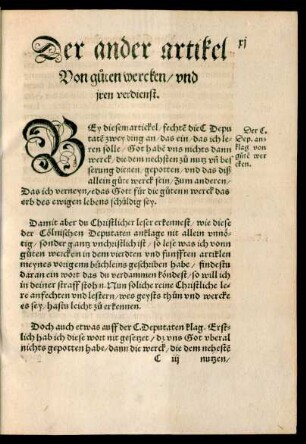 xj
Der ander artikel
Von gůten wercken/ vnd
jren verdienst.
BEy diesem artickel/ fechtē die C Depu
tatē zwey ding an/ das ein/ das ich le
ren solle/ Got habe vns nichts dann
werck/ die dem nechsten zů nutz vñ bes
serung dienen/ gepotten/ vnd das diß
allein gůte werck sein/ Zum anderen/
Das ich verneyn/ das Got für die gůtenn werck das
erb des ewigen lebens schüldig sey.
Der C.
Dep. an=
klag von
gůtē wer
cken.
Damit aber du Christlicher leser erkennest/ wie diese
der Cölnischen Deputaten anklage nit allein vnnö=
tig/ sonder gantz vnchristlich ist/ so lese was ich vonn
gůten wercken in dem vierdten vnd fünfften artiklen
meynes vorigenn büchleins geschriben habe/ findestu
daran ein wort das du verdammen köndest/ so will ich
in deiner straff stohn. Nun soliche reine Christliche le=
re anfechten vnd lestern/ wes geysts thůn vnd wercke
es sey/ hastu leicht zů erkennen.
Doch auch etwas auff der C.Deputaten klag/ Erst=
lich hab ich diese wort nit gesetzet/ dz vns Got vberal
nichts gepotten habe/ dann die werck/ die dem nehestē
C iij
nutzen/